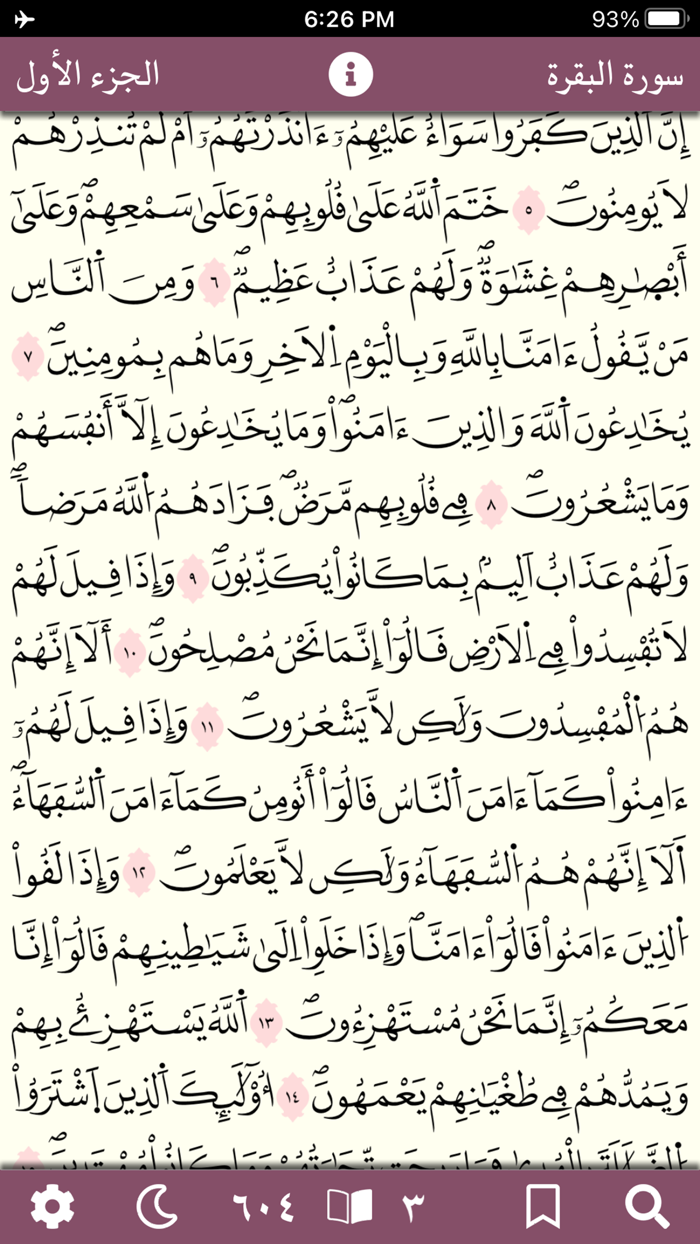 6:26 PM 93%
سورة البقرة الجزء الأول
إِنَّ اَلذِينَ كَفَرُواْ سَوَآءٌ عَلَيْهِمُۥٓ ءَآنذَرْتَهُمُۥٓ أَمْ لَمْ تُنذِرْهُمْ
لَا يُومِنُونَۖ ٥ خَتَمَ اَللَّهُ عَلَىٰ قُلُوبِهِمْ وَعَلَىٰ سَمْعِهِمْۖ وَعَلَىٰٓ
أَبْصٰ۪رِهِمْ غِشَٰوَةٞۖ وَلَهُمْ عَذَابٌ عَظِيمٞۖ ٦ وَمِنَ اَلنَّاسِ
مَنْ يَّقُولُ ءَامَنَّا بِاللَّهِ وَبِالْيَوْمِ اِلَاخِرِ وَمَا هُم بِمُومِنِينَۖ ٧
يُخَٰدِعُونَ اَللَّهَ وَالذِينَ ءَامَنُواْۖ وَمَا يُخَٰدِعُونَ إِلَّآ أَنفُسَهُمْ
وَمَا يَشْعُرُونَۖ ٨ فِے قُلُوبِهِم مَّرَضٞۖ فَزَادَهُمُ اُللَّهُ مَرَضاٗۖ
وَلَهُمْ عَذَابٌ اَلِيمُۢ بِمَا كَانُواْ يُكَذِّبُونَۖ ٩ وَإِذَا قِيلَ لَهُمْ
لَا تُفْسِدُواْ فِے اِلَارْضِ قَالُوٓاْ إِنَّمَا نَحْنُ مُصْلِحُونَۖ ١٠ أَلَآ إِنَّهُمْ
هُمُ اُلْمُفْسِدُونَ وَلَٰكِن لَّا يَشْعُرُونَۖ ١١ وَإِذَا قِيلَ لَهُمُۥٓ
ءَامِنُواْ كَمَآ ءَامَنَ اَلنَّاسُ قَالُوٓاْ أَنُومِنُ كَمَآ ءَامَنَ اَلسُّفَهَآءُۖ
أَلَآ إِنَّهُمْ هُمُ اُلسُّفَهَآءُ وَلَٰكِن لَّا يَعْلَمُونَۖ ١٢ وَإِذَا لَقُواْ
اُلذِينَ ءَامَنُواْ قَالُوٓاْ ءَامَنَّاۖ وَإِذَا خَلَوِاْ اِلَىٰ شَيَٰطِينِهِمْ قَالُوٓاْ إِنَّا
مَعَكُمُۥٓ إِنَّمَا نَحْنُ مُسْتَهْزِءُونَۖ ١٣ اَللَّهُ يَسْتَهْزِۓُ بِهِمْ
وَيَمُدُّهُمْ فِے طُغْيَٰنِهِمْ يَعْمَهُونَۖ ١٤ أُوْلَٰٓئِكَ اَلذِينَ اَشْتَرَوُاْ
٦٠٤ ٣